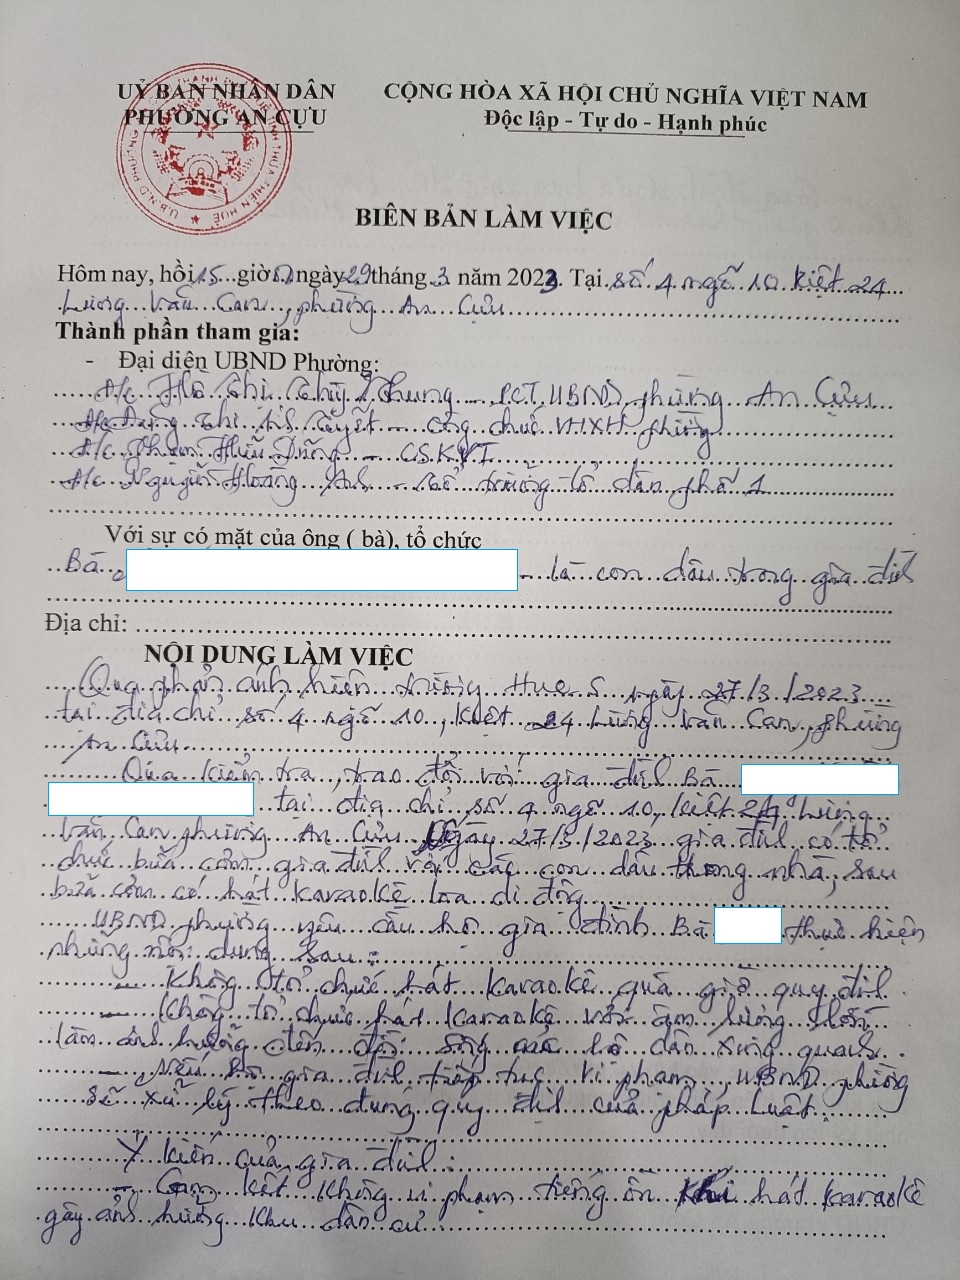 UỶ BAN NHÂN DÂN
PHƯỜNG AN CỰU
CỘNG HÒA XÃ HỘI CHỦ NGHĨA VIỆT NAM
Độc lập - Tự do - Hạnh phúc
BIÊN BẢN LÀM VIỆC
Hôm nay, hồi 15 giờ ngày 29 tháng 3 năm 2023. Tại số 4 ngõ 10 kiệt 24
Lương Văn Can, phường An Cựu
Thành phần tham gia:
- Đại diện UBND Phường:
A/c Hồ Thị Thùy Nhung - PCT UBND phường An Cựu
A/c Thị Tuyết - công chức VHXH phường
A/c Phạm Hữu Dũng - CSKV
A/c Nguyễn Hoàng - tổ trưởng tổ dân phố 1
Với sự có mặt của ông ( bà), tổ chức
Bà - là con dâu trong gia đình
Địa chỉ:
NỘI DUNG LÀM VIỆC
Qua phản ánh hiện trường Hue S ngày 27/3/2023
tại địa chỉ số 4 ngõ 10, kiệt 24 Lương Văn Can, phường
An Cựu
Qua kiểm tra, trao đổi với gia đình Bà
tại địa chỉ số 4 ngõ 10, kiệt 24 Lương
Văn Can phường An Cựu. Ngày 27/3/2023 gia đình có tổ
chức bữa cơm gia đình với các con dâu trong nhà, sau
bữa cơm có hát karaokê loa di động
UBND phường yêu cầu hộ gia đình Bà thực hiện
những nội dung sau:
- Không tổ chức hát karaokê quá giờ quy định
- Không tổ chức hát karaokê với âm lượng lớn
làm ảnh hưởng đến đời sống các hộ dân xung quanh.
- Nếu hộ gia đình tiếp tục vi phạm, UBND phường
sẽ xử lý theo đúng quy định của pháp luật.
Ý kiến của gia đình:
- Cam kết không vi phạm tiếng ồn khi hát karaokê
gây ảnh hưởng khu dân cư